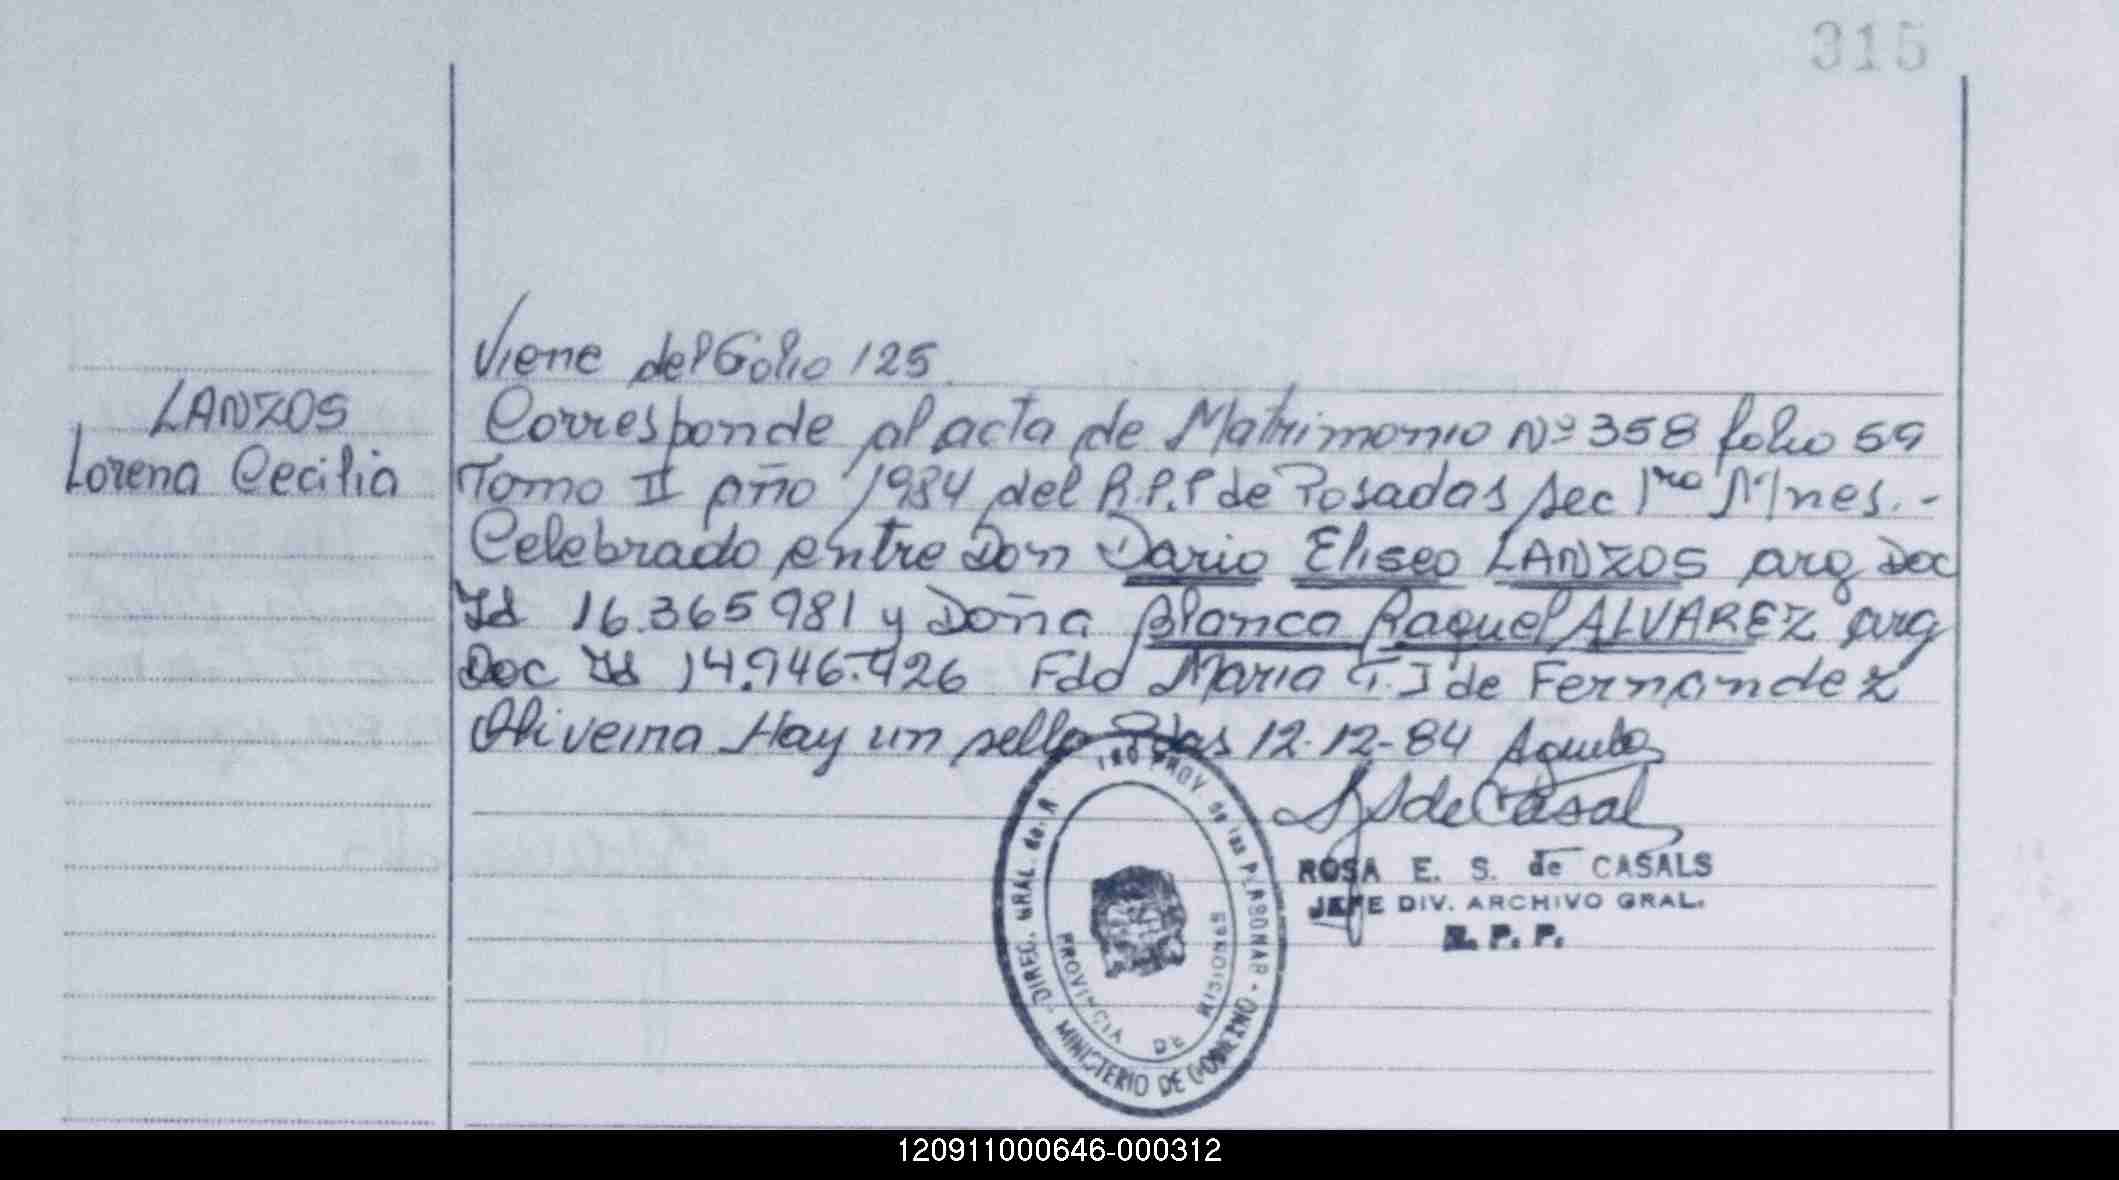 315
Viene del Folio 125
LANZOS
Lorena Cecilia
Corresponde al acta de Matrimonio Nº 358 folio 59
Tomo II año 1984 del R.P.P de Posadas sec 1ra Mnes.-
Celebrado entre Don Dario Eliseo LANZOS arg Doc
Id 16.365981 y Doña Blanca Raquel ALVAREZ arg
Doc Id 14.946.426 Fdo Maria T.J de Fernandez
Oliveira Hay un sello Pdas 12-12-84
ROSA E. S. de CASALS
JEFE DIV. ARCHIVO GRAL.
R. P. P.
DIREC. GRAL. del R PROV de las PERSONAS -
MINISTERIO DE GOBIERNO -
PROVINCIA DE MISIONES
120911000646-000312